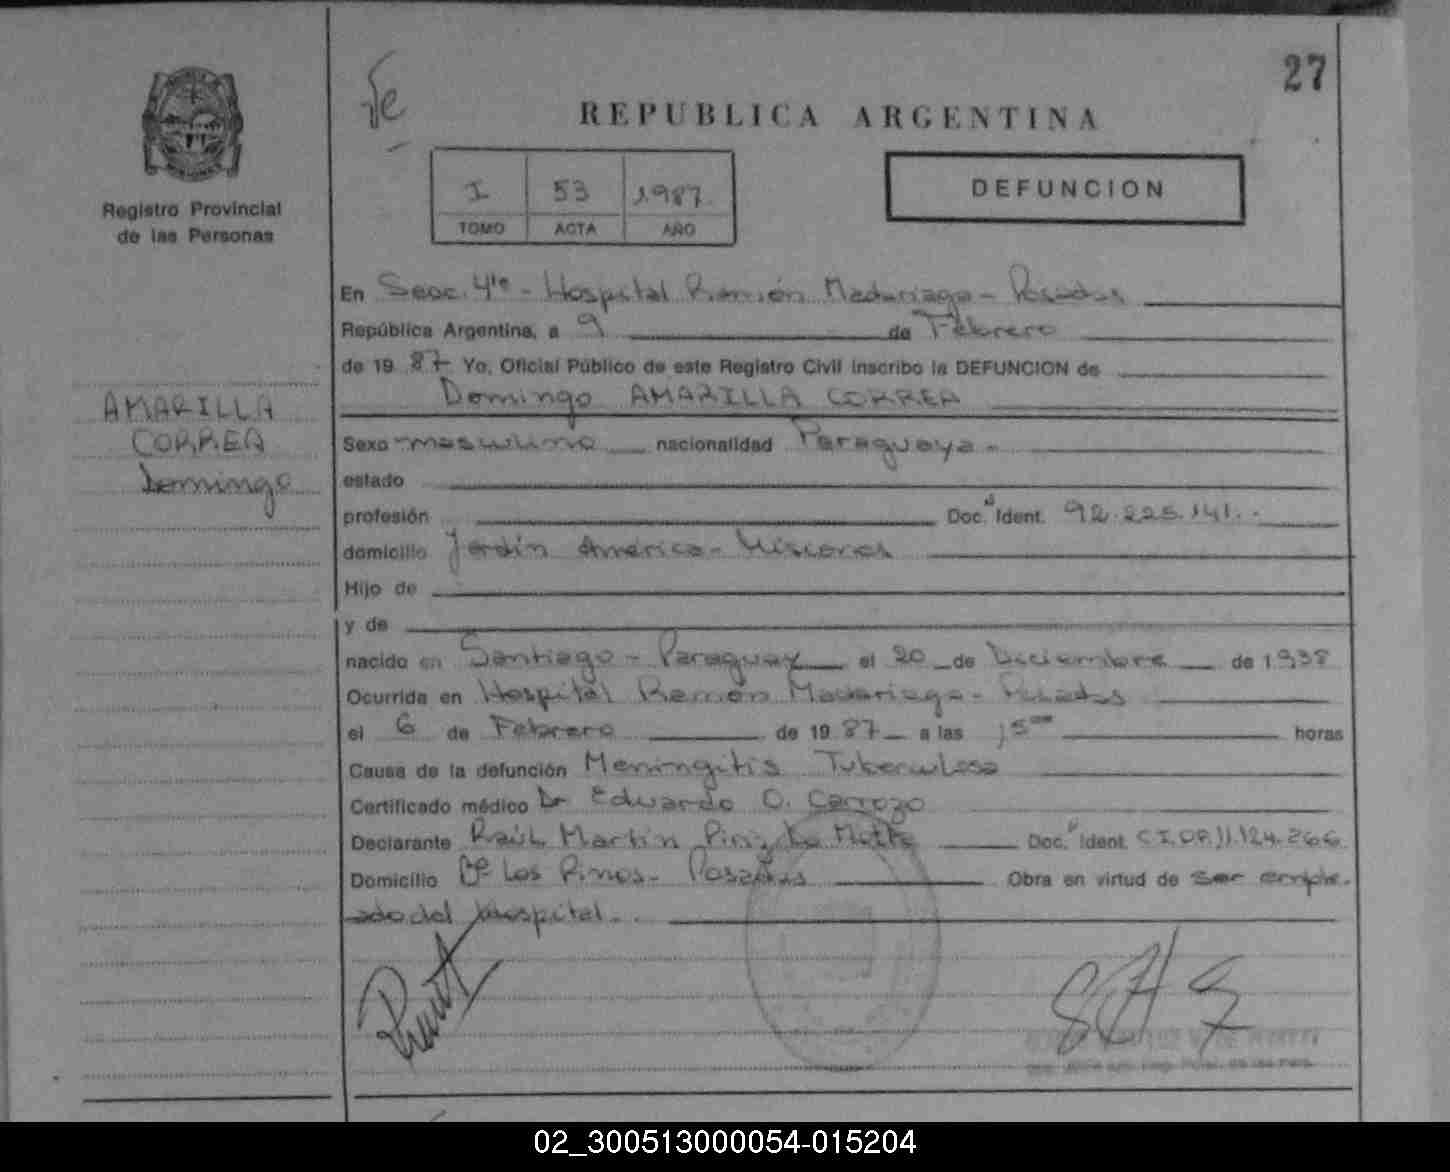 27
REPUBLICA ARGENTINA
I 53 1987
TOMO ACTA AÑO
DEFUNCION
Registro Provincial
de las Personas
AMARILLA
CORREA
Domingo
En Secc. 4ta - Hospital Ramón Madariaga - Posadas
República Argentina, a 9 de Febrero
de 19 87 Yo, Oficial Público de este Registro Civil inscribo la DEFUNCION de
Domingo AMARILLA CORREA
Sexo masculino nacionalidad Paraguaya -
estado
profesión Doc. Ident. 92.225.141.-
domicilio Jardín América - Misiones
Hijo de
y de
nacido en Santiago - Paraguay el 20 de Diciembre de 1.938
Ocurrida en Hospital Ramón Madariaga - Posadas
el 6 de Febrero de 19 87 a las 15 horas
Causa de la defunción Meningitis Tuberculosa
Certificado médico Dr Eduardo O. Carrozo
Declarante Raúl Martín Doc. Ident. 11.124.266.
Domicilio Los Pinos - Posadas Obra en virtud de ser emple-
ado del Hospital.
02_300513000054-015204